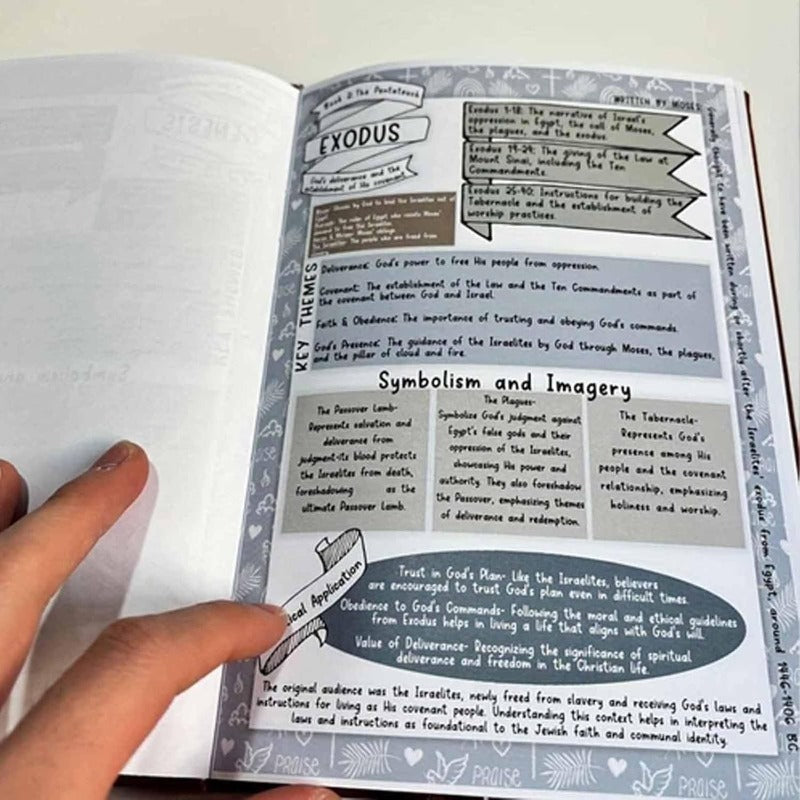 Book 2: The Pentateuch
EXODUS
God's deliverance and the
establishment of His covenant
WRITTEN BY MOSES
Exodus 1-18: The narrative of Israel's
oppression in Egypt, the call of Moses,
the plagues, and the exodus.
Exodus 19-24: The giving of the Law at
Mount Sinai, including the Ten
Commandments.
Exodus 25-40: Instructions for building the
Tabernacle and the establishment of
worship practices.
Moses: Chosen by God to lead the Israelites out of
Egypt
Pharaoh: The ruler of Egypt who resists Moses'
demand to free the Israelites
Aaron & Miriam: Moses' siblings
The Israelites: The people who are freed from
KEY THEMES
Deliverance: God's power to free His people from oppression.
Covenant: The establishment of the Law and the Ten Commandments as part of
the covenant between God and Israel.
Faith & Obedience: The importance of trusting and obeying God's commands.
God's Presence: The guidance of the Israelites by God through Moses, the plagues,
and the pillar of cloud and fire.
Symbolism and Imagery
The Passover Lamb-
Represents salvation and
deliverance from
judgment-its blood protects
the Israelites from death,
foreshadowing as the
ultimate Passover Lamb.
The Plagues-
Symbolize God's judgment against
Egypt's false gods and their
oppression of the Israelites,
showcasing His power and
authority. They also foreshadow
the Passover, emphasizing themes
of deliverance and redemption.
The Tabernacle-
Represents God's
presence among His
people and the covenant
relationship, emphasizing
holiness and worship.
ical Application
Trust in God's Plan- Like the Israelites, believers
are encouraged to trust God's plan even in difficult times.
Obedience to God's Commands- Following the moral and ethical guidelines
from Exodus helps in living a life that aligns with God's will.
Value of Deliverance- Recognizing the significance of spiritual
deliverance and freedom in the Christian life.
The original audience was the Israelites, newly freed from slavery and receiving God's laws and
instructions for living as His covenant people. Understanding this context helps in interpreting the
laws and instructions as foundational to the Jewish faith and communal identity.
Generally thought to have been written during or shortly after the Israelites' exodus from Egypt, around 1446-1406 BC
PRAISE
PRAISE
PRAISE